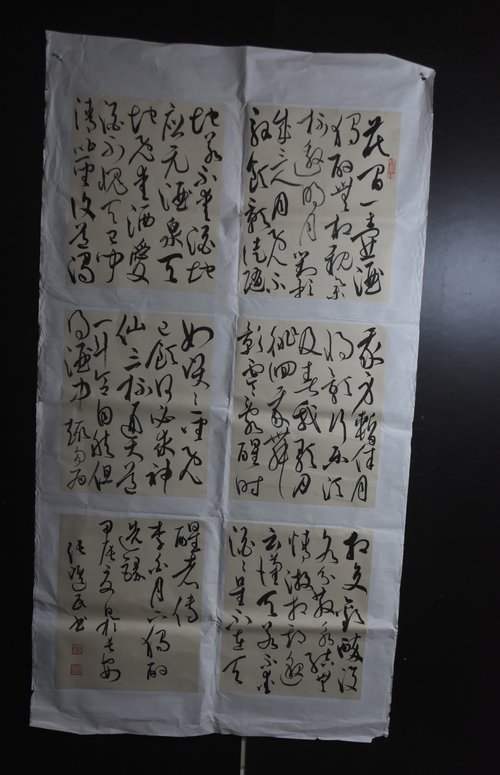 花间一壶酒
独酌无相亲举
杯邀明月对影
成三人月既不
解饮影徒随
我身暂伴月
将影行乐须
及春我歌月
徘徊我舞
影零乱醒时
相交欢醉后
各分散永结无
情游相期邈
云汉天若不爱
酒酒星不在天
地若不爱酒地
应无酒泉天
地既爱酒爱
酒不愧天已闻
清比圣复道浊
如贤圣既
已饮何必求神
仙三杯通大道
一斗合自然但
得酒中趣勿为
醒者传
李白月下独酌
选录
甲辰夏日於长安
书